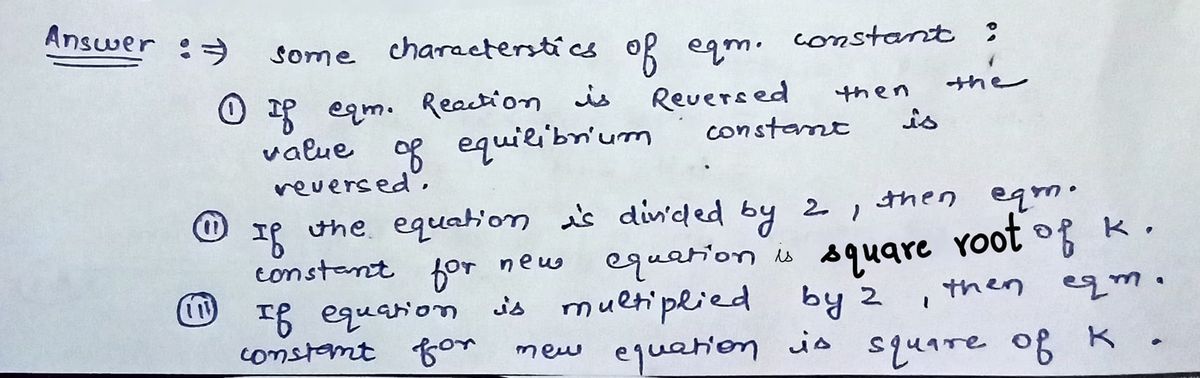 Answer :⇒ some characterstics of eqm. constant :
① If eqm. Reaction is Reversed then the
value of equilibrium constant is
reversed.
(ii) If the equation is divided by 2, then eqm.
constant for new equation is square root of K.
(iii) If equation is multiplied by 2, then eqm.
constant for new equation is square of K.